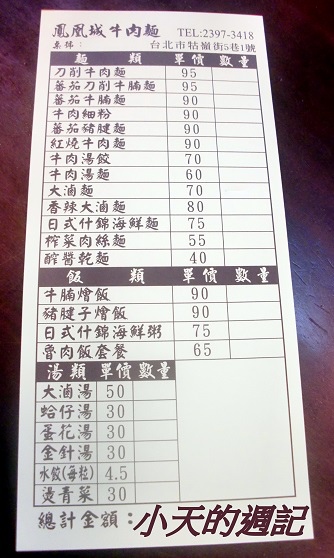 鳳凰城牛肉麵 TEL:2397-3418
桌號: 台北市牯嶺街5巷1號
麵 類 單價 數量
刀削牛肉麵 95
蕃茄刀削牛腩麵 95
蕃茄牛腩麵 90
牛肉細粉 90
蕃茄豬腱麵 90
紅燒牛肉麵 90
牛肉湯餃 70
牛肉湯麵 60
大滷麵 70
香辣大滷麵 80
日式什錦海鮮麵 75
榨菜肉絲麵 55
醡醬乾麵 40
飯 類 單價 數量
牛腩燴飯 90
豬腱子燴飯 90
日式什錦海鮮粥 75
魯肉飯套餐 65
湯類 單價 數量
大滷湯 50
蛤仔湯 30
蛋花湯 30
金針湯 30
水餃(每粒) 4.5
燙青菜 30
總計金額:
小天的週記